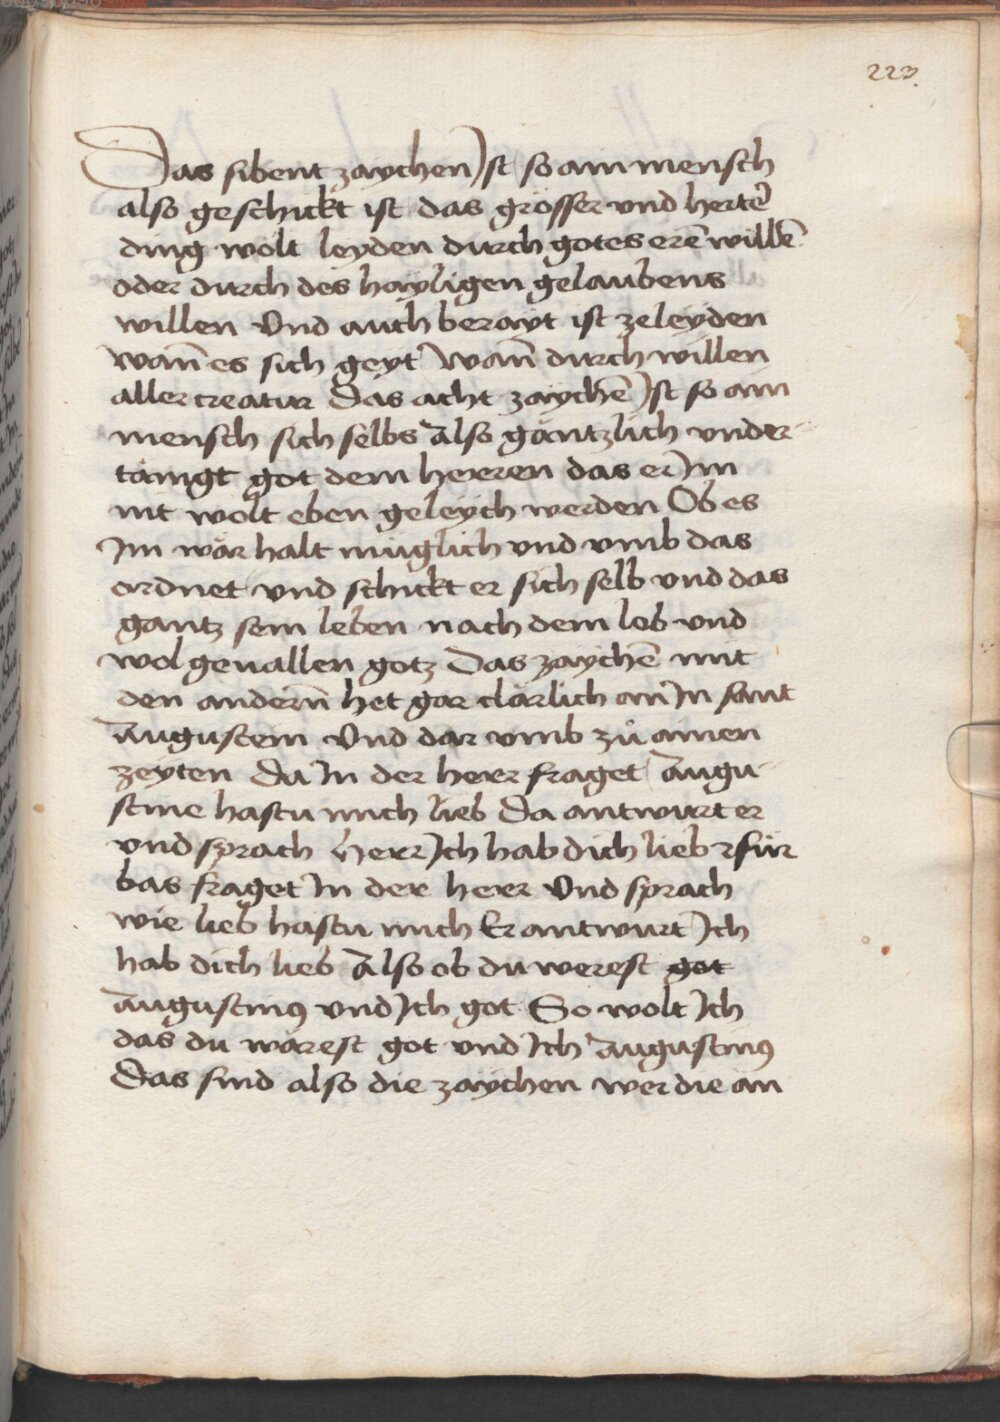 223
Das sibent zaychen Ist so ain mensch
also geschickt ist das grösser vnd hertē
ding wolt leyden durch gotes erē willē
oder durch des hayligen gelaubens
willen Vnd auch berayt ist zeleyden
wan̄ es sich geyt wan̄ durch willen
aller creatur Das acht zaychē Ist so ain
mensch sich selbs also gäntzlich vnder
tänigt got dem herren das er Im
nit wolt eben geleych werden Ob es
Im wär halt müglich vnd vmb das
ordnet vnd schickt er sich selb vnd das
gantz sein leben nach dem lob vnd
wolgeuallen gotz Das zaychē mit
den andern̄ het gar clärlich an In sant
Augustein Vnd dar vmb zů ainen
zeyten Da In der herr fraget Augu
stine hastu mich lieb Da antwurt er
vnd sprach Herr Ich hab dich lieb für
bas fraget In der herr Vnd sprach
wie lieb hastu mich Er antwurt Ich
hab dich lieb Also ob du werest got
Augustinꝰ vnd Ich got So wolt Ich
das du wärest got vnd Ich Augustinꝰ
Das sind also die zaychen wer die an